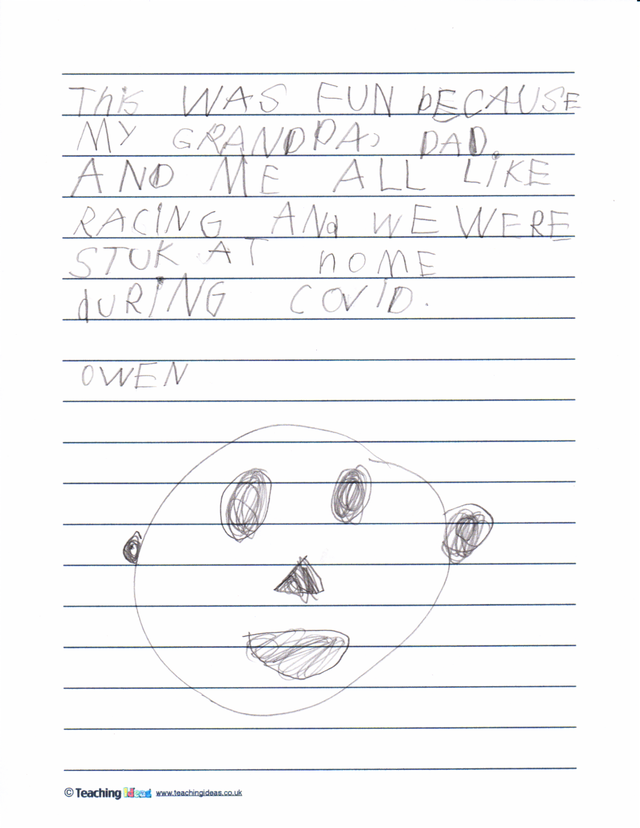 This WAS FUN bECAUSE
MY GRANDPA, DAD,
AND ME ALL LIKE
RACING ANd WE WERE
STUK AT hOME
dURING COVID.
OWEN
© Teaching Ideas www.teachingideas.co.uk